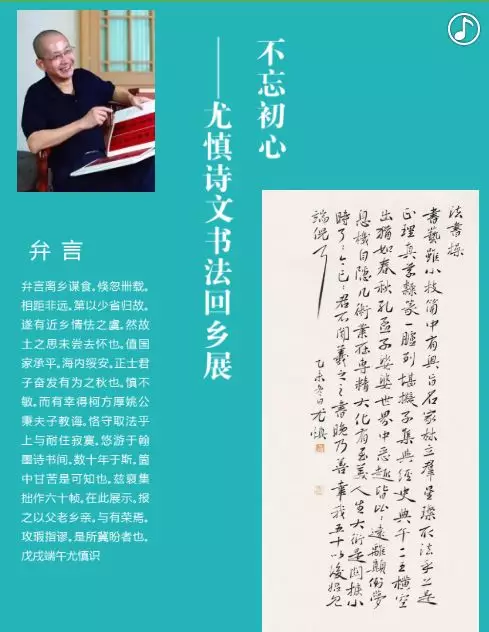 不忘初心
——尤慎诗文书法回乡展
弁言
弁言离乡谋食，倏忽卌载。
相距非远，第以少省归故。
遂有近乡情怯之虞。然故
土之思未尝去怀也。值国
家承平，海内绥安。正士君
子奋发有为之秋也。慎不
敏，而有幸得柯方厚姚公
秉夫子教诲，恪守取法乎
上与耐住寂寞，悠游于翰
墨诗书间，数十年于斯，箇
中甘苦是可知也。兹裒集
拙作六十帧，在此展示，报
之以父老乡亲，与有荣焉。
攻瑕指谬，是所冀盼者也。
戊戌端午尤慎识
法书操
书艺虽小技箇中有奥旨名家林立群星璨取法乎上是
正理真草隶篆一胪列堪拟子集与经史典午二王横空
出犹如春秋孔孟子娑婆世界中恶趣皆如此远离颠倒梦
息机自隐几术业在专精大化有至美人生大术是
时了今已若不闻羲之之书晚乃善幸我五十以后始见
端倪了
乙未冬日尤慎